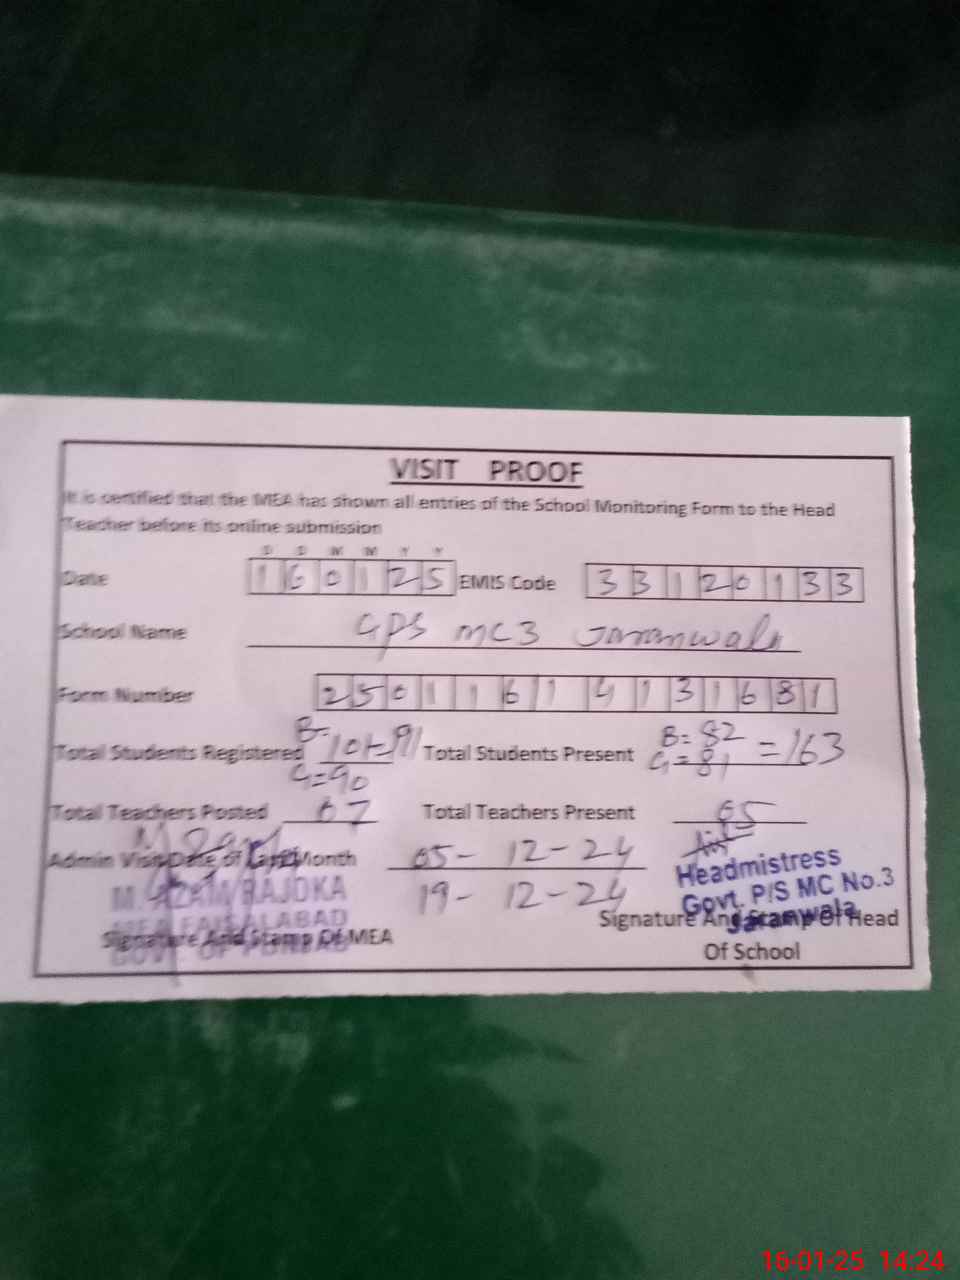 VISIT PROOF
It is certified that the MEA has shown all entries of the School Monitoring Form to the Head
Teacher before its online submission
D D M M Y Y
Date 160125 EMIS Code 33120133
School Name GPS MC3 Jaranwala
Form Number 25011614131681
B=
Total Students Registered 101 91 Total Students Present B= 82 = 163
G=90 G= 81
Total Teachers Posted 07 Total Teachers Present 05
Admin Visit Date of Last Month 05- 12-24
19- 12-24
M. AZAM RAJOKA
MEA FAISALABAD
GOVT. OF PUNJAB
Signature And Stamp Of MEA
Headmistress
Govt. P/S MC No.3
Jaranwala
Signature And Stamp Of Head
Of School
16-01-25 14:24